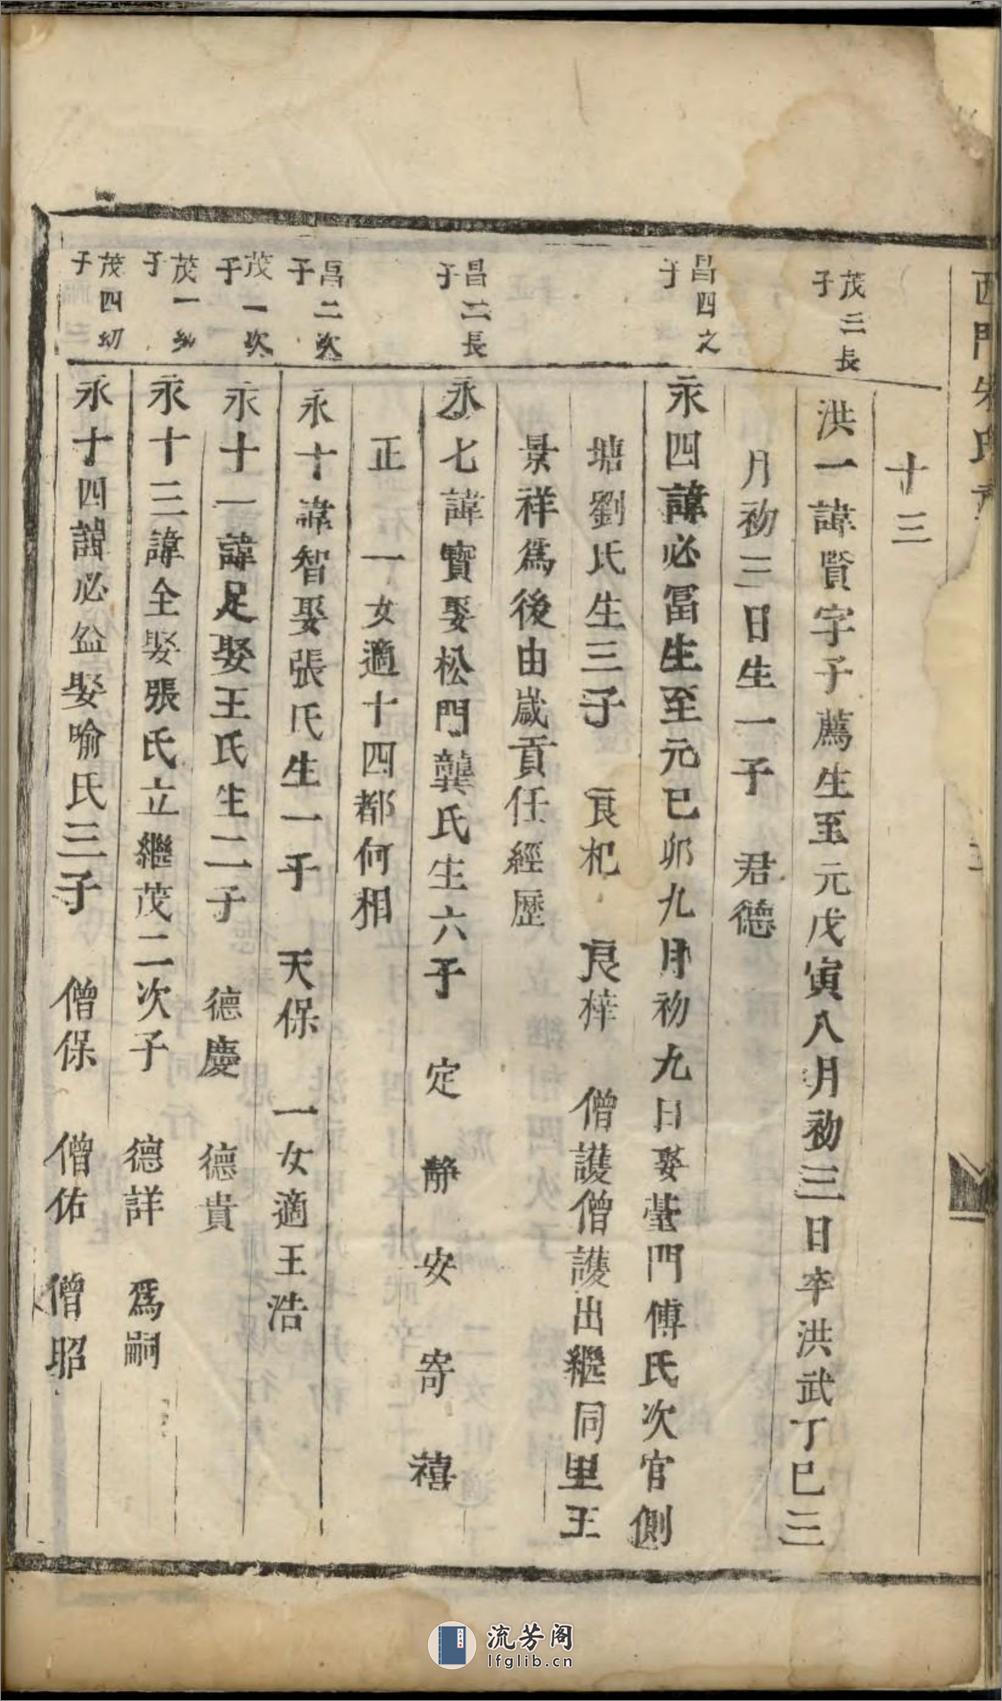 西門朱氏
十三
茂三長子
洪一諱賢字子薦生至元戊寅八月初三日卒洪武丁巳三
月初三日生一子 君德
昌四之子
永四諱必冨生至元己卯九月初九日娶臺門傅氏次官側
塘劉氏生三子 良杞 良梓 僧護僧護出繼同里王
景祥爲後由歲貢任經歷
昌二長子
永七諱寳娶松門龔氏生六子 定 靜 安 寄 禧
正 一女適十四都何相
昌二次子
永十諱智娶張氏生一子 天保 一女適王浩
茂一次子
永十一諱足娶王氏生二子 德慶 德貴
茂一幼子
永十三諱全娶張氏立繼茂二次子 德詳 爲嗣
茂四初子
永十四諱必益娶喻氏三子 僧保 僧佑 僧昭
流芳阁
lfglib.cn